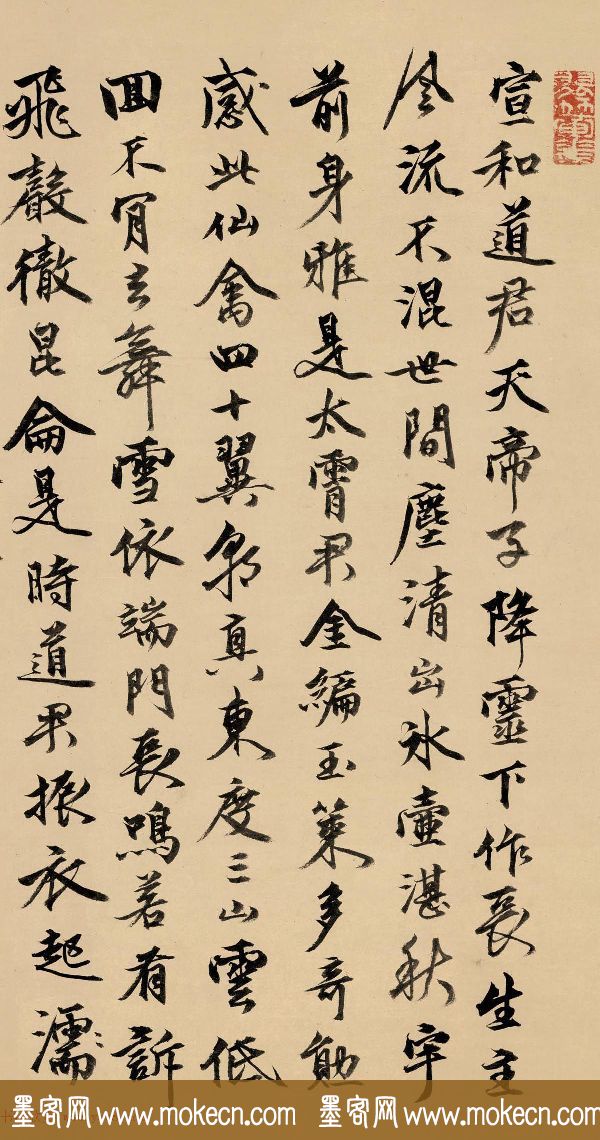 宣和道君天帝子降靈下作長生主
風流不混世間塵清出冰壺湛秋宇
前身雅是太霄君金編玉策多奇勛
感此仙禽四十翼朝真東度三山雲低
回不肯去舞雪依端門長鳴若有訴
飛聲徹昆侖是時道君振衣起濡
墨客网 www.mokecn.com 墨客网 www.mokecn.com